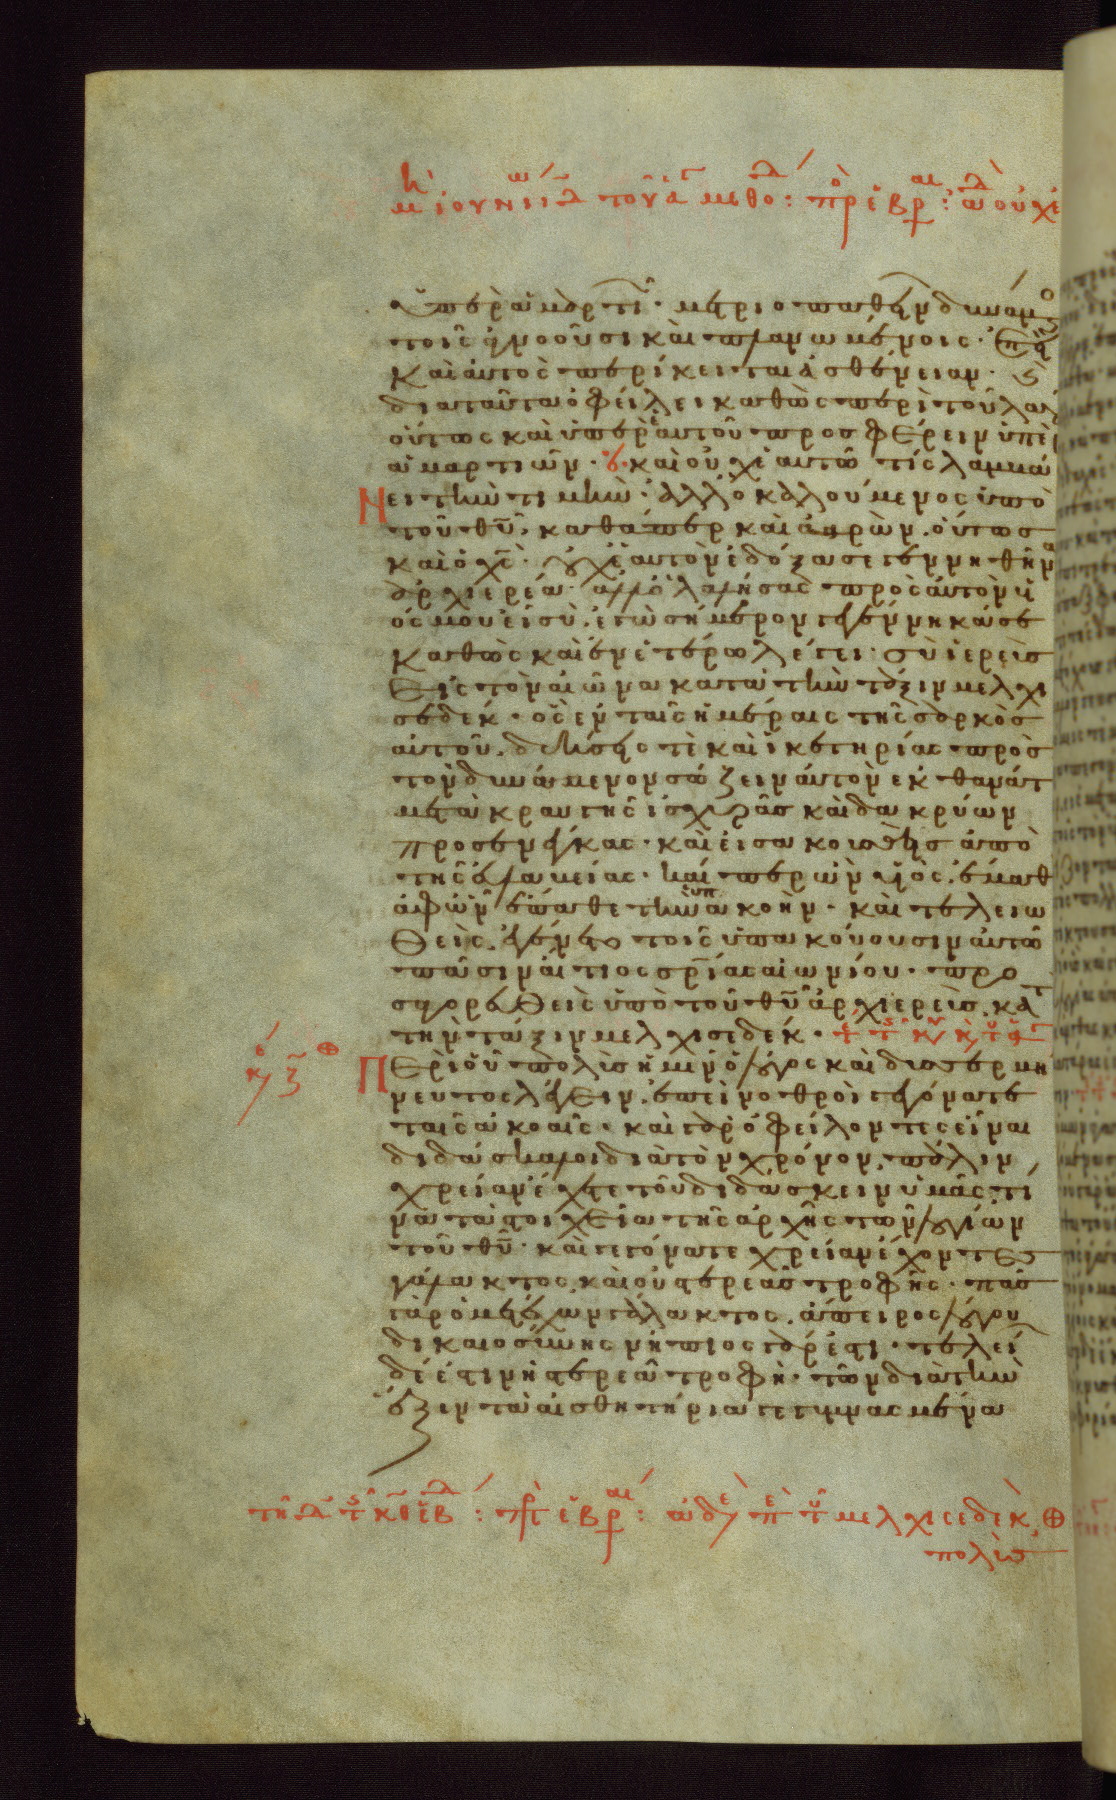 ὑπὲρ ἁμαρτιῶν· μετριοπαθεῖν δυνάμενο
τοῖς ἀγνοοῦσι καὶ πλανωμένοις· ἐπεὶ
καὶ αὐτὸς περίκειται ἀσθένειαν·
διὰ ταῦτα ὀφείλει καθὼς περὶ τοῦ λα
οὕτως καὶ ὑπὲρ ἑαυτοῦ προσφέρειν ὑπὲρ
ἁμαρτιῶν· καὶ οὐχ ἑαυτῶ τίς λαμβά
Νει τὴν τιμὴν· ἀλλὸ καλούμενος ὑπὸ
τοῦ θῦ, καθάπερ καὶ ἀαρὼν. οὕτως
καὶ ὁ χς· οὐχ ἑαυτὸν ἐδόξασε γεννηθῆναι
ἀρχιερέα· ἀλλ' ὁ λαλήσας πρὸς αὐτὸν υἱ
ός μου εἶ σὺ, ἐγὼ σήμερον γεγέννηκά σε
καθὼς καὶ ἐν ἑτέρω λέγει· σὺ ἱερεὺς
εἰς τὸν αἰῶνα κατὰ τὴν τάξιν μελχι
σεδέκ· ὃς ἐν ταῖς ἡμέραις τῆς σαρκὸς
αὐτοῦ. δεήσεις τὲ καὶ ἱκετηρίας πρὸς
τὸν δυνάμενον σώζειν αὐτὸν ἐκ θανάτ
μετὰ κραυγῆς ἰσχυρᾶς καὶ δακρύων
προσενέγκας· καὶ εἰσακουσθεὶς ἀπὸ
τῆς εὐλαβείας· καί περ ὢν υἱὸς. ἔμαθ
ἀφ' ὧν ἔπαθε τὴν ὑπακοὴν· καὶ τελειω
θεὶς, ἐγένετο τοῖς ὑπακούουσιν αὐτῶ
πᾶσιν αἴτιος σρίας αἰωνίου· προ
σαγορευθεὶς ὑπὸ τοῦ θῦ ἀρχιερεὺς κατ
τὴν τάξιν μελχισιδέκ·
Περὶ οὗ πολὺς ἡμῖν ὁ λόγος καὶ δυσερμή
νευτος λέγειν. ἐπεὶ νωθροὶ γεγόνατε
ταῖς ἀκοαῖς· καὶ γὰρ ὀφείλοντες εἶναι
διδάσκαλοι διὰ τὸν χρόνον. πάλιν
χρείαν ἔχετε τοῦ διδάσκειν ὑμᾶς τί
να τὰ στοιχεῖα τῆς ἀρχῆς τῶν λογίων
τοῦ θῦ· καὶ γεγόνατε χρείαν ἔχοντες
γάλακτος, καὶ οὐ στερεᾶς τροφῆς· πᾶς
γὰρ ὁ μετέχων γάλακτος, ἄπειρος λόγου
δικαιοσύνης νήπιος γάρ ἐστι· τελεί
δέ ἐστιν ἡ στερεὰ τροφὴ· τῶν διὰ τὴν
ἕξιν τὰ αἰσθητήρια γεγυμνασμένα